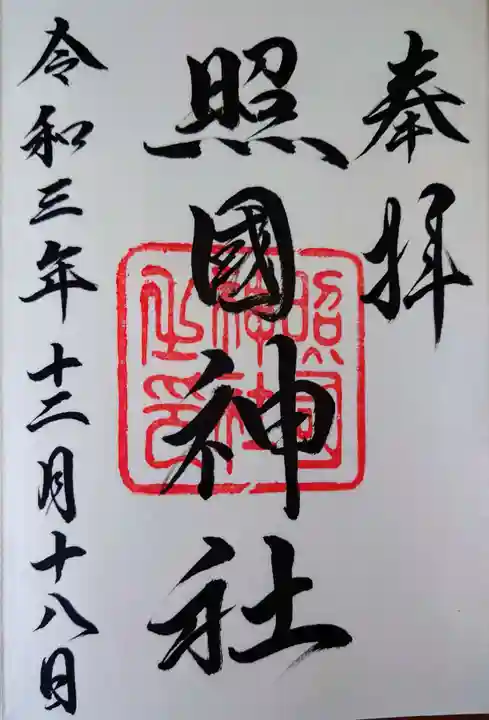 奉拝
照國神社
照國神社之印
令和三年十二月十八日